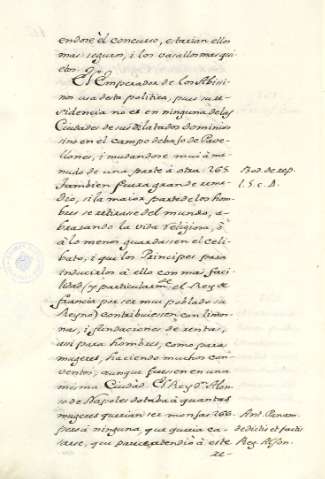 endose el concurso, estarian ellos
mas seguros, i los vasallos mas qui
etos.
El Emperador de los Abisi
nos usa desta politica, pues su re
sidencia no es en ninguna de las
Ciudades de sus dilatados dominios
sino en el campo debajo de Pave
llones, i mudandose mui à me
nudo de una parte à otra 265.
Tambien fuera grande reme
dio, si la maior parte de los hom
bres se retirase del mundo, a
brasando la vida religiosa, ò
à lo menos guardasen el celi
bato, i que los Principes para
inducirlos à ello con mas faci
lidad (y particularmte el Rey de
francia por ser mui poblado su
Reyno) contribuiesen con limos
nas, i fundaciones de rentas,
asi para hombres, como para
mugeres, haciendo muchos con
ventos, aunque fuesen en una
misma Ciudad. El Rey Dn Alon
so de Napoles dotaba à quantas
mugeres querian ser monjas 266.
pero à ninguna, que queria ca
sarse, que parece atendiò à este
re-
Bod. de rep.
l. 5. c.
Ant. Panorm.
de dictis et factis
Reg. Alfon.